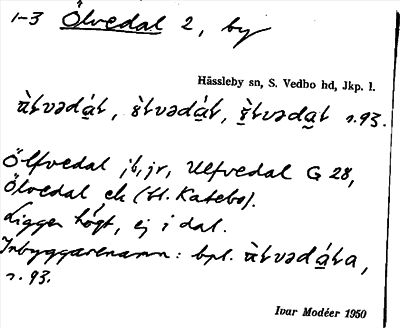 1-3 Ölvedal 2, by
Hässleby sn, S. Vedbo hd, Jkp. l.
s. 93.
Ölfvedal jb, jr, Ulfvedal G 28,
Ölvedal, ek (bl. Katebo).
Ligger högt, ej i dal.
Inbyggarenamn: bpl.
s. 93.
Ivar Modéer 1950